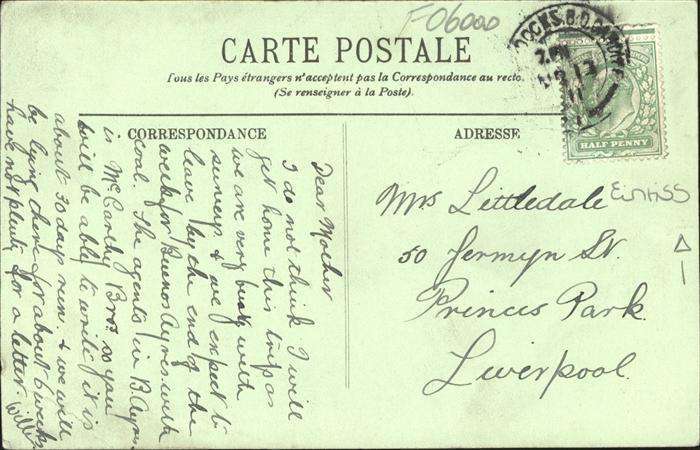 F06000
CARTE POSTALE
Tous les Pays étrangers n'acceptent pas la Correspondance au recto.
(Se renseigner à la Poste).
HALF PENNY
CORRESPONDANCE
Dear Mother
I do not think I will
get home this trip as
we are very busy with
surveys & we expect to
leave by the end of the
week for Buenos Ayres with
coal. The agents in B. Ayres
is McCarthy Bros. so you
will be able to write it is
about 30 days run. & we will
be lying there for about 6 weeks
have not plenty for a letter. Willy
ADRESSE
Mrs Littledale
50 Jermyn St.
Princes Park
Liverpool.